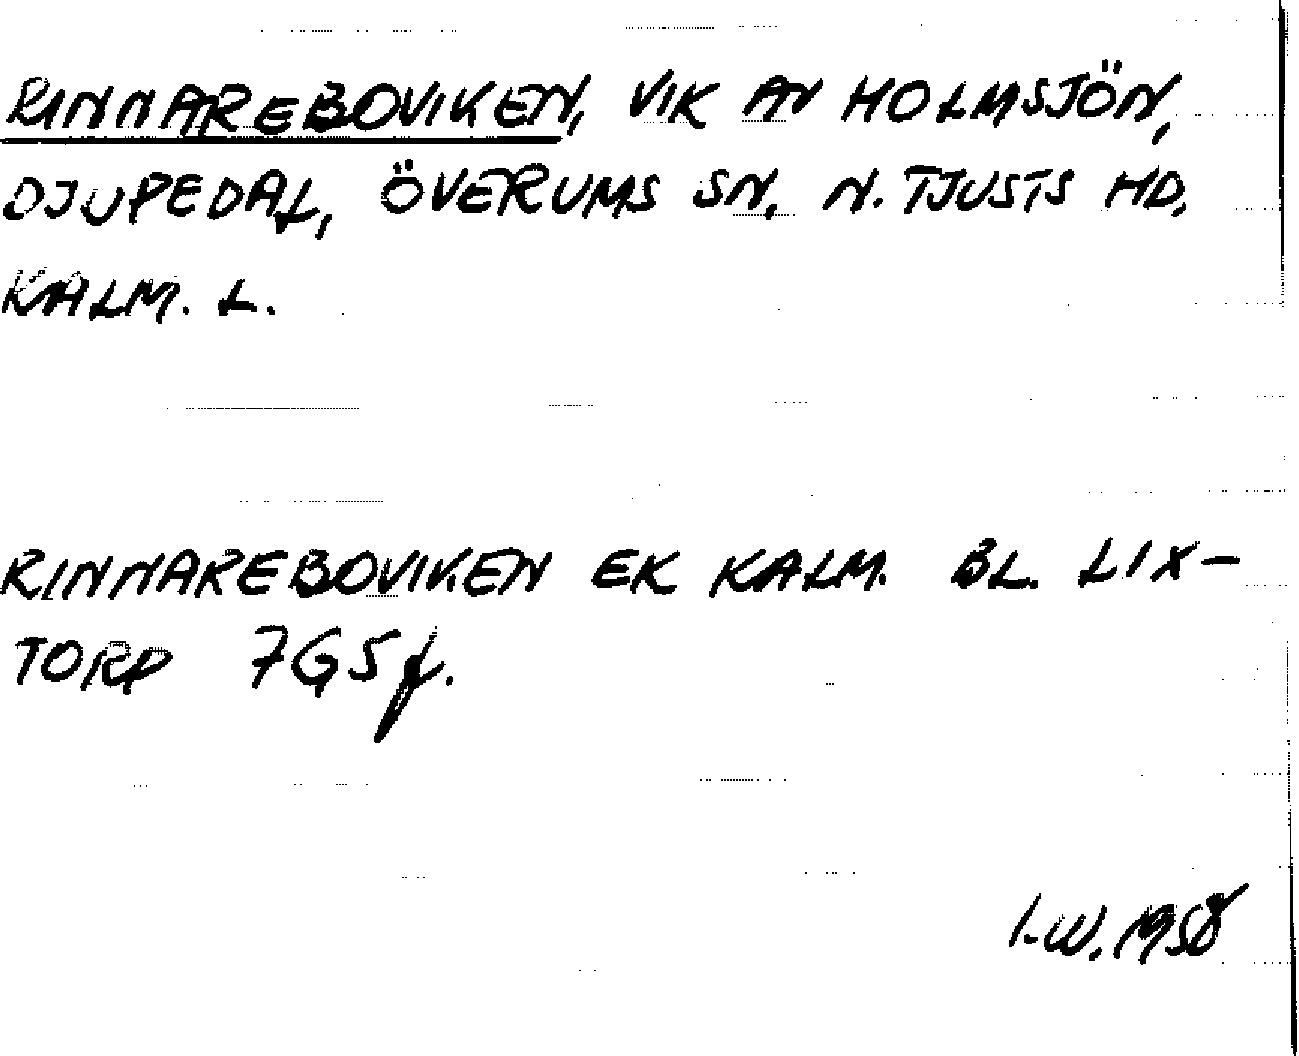 RINNAREBOVIKEN, VIK AV HOLMSJÖN,
DJUPEDAL, ÖVERUMS SN, N. TJUSTS HD,
KALM. L.
RINNAREBOVIKEN EK KALM. BL. LIX-
TORP 7G5f.
I.W. 1958